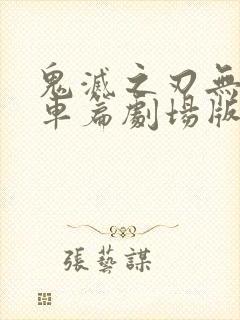 鬼滅之刃無
車篇劇場版
張藝謀